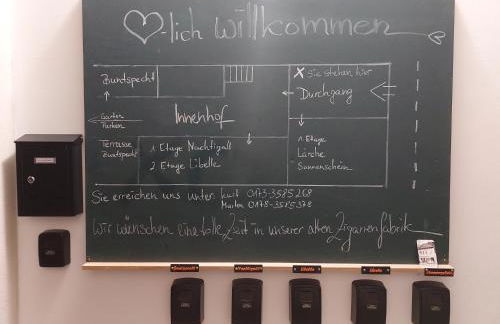 ♡-lich willkommen
Buntspecht
X Sie stehen hier
Durchgang
Garten
Parken
Innenhof
Terrasse
Buntspecht
1. Etage Nachtigall
2. Etage Libelle
1. Etage
Lärche
Sonnenschein
Sie erreichen uns unter
0173-3585268
0178-3585378
Wir wünschen eine tolle Zeit in unserer alten Zigarrenfabrik